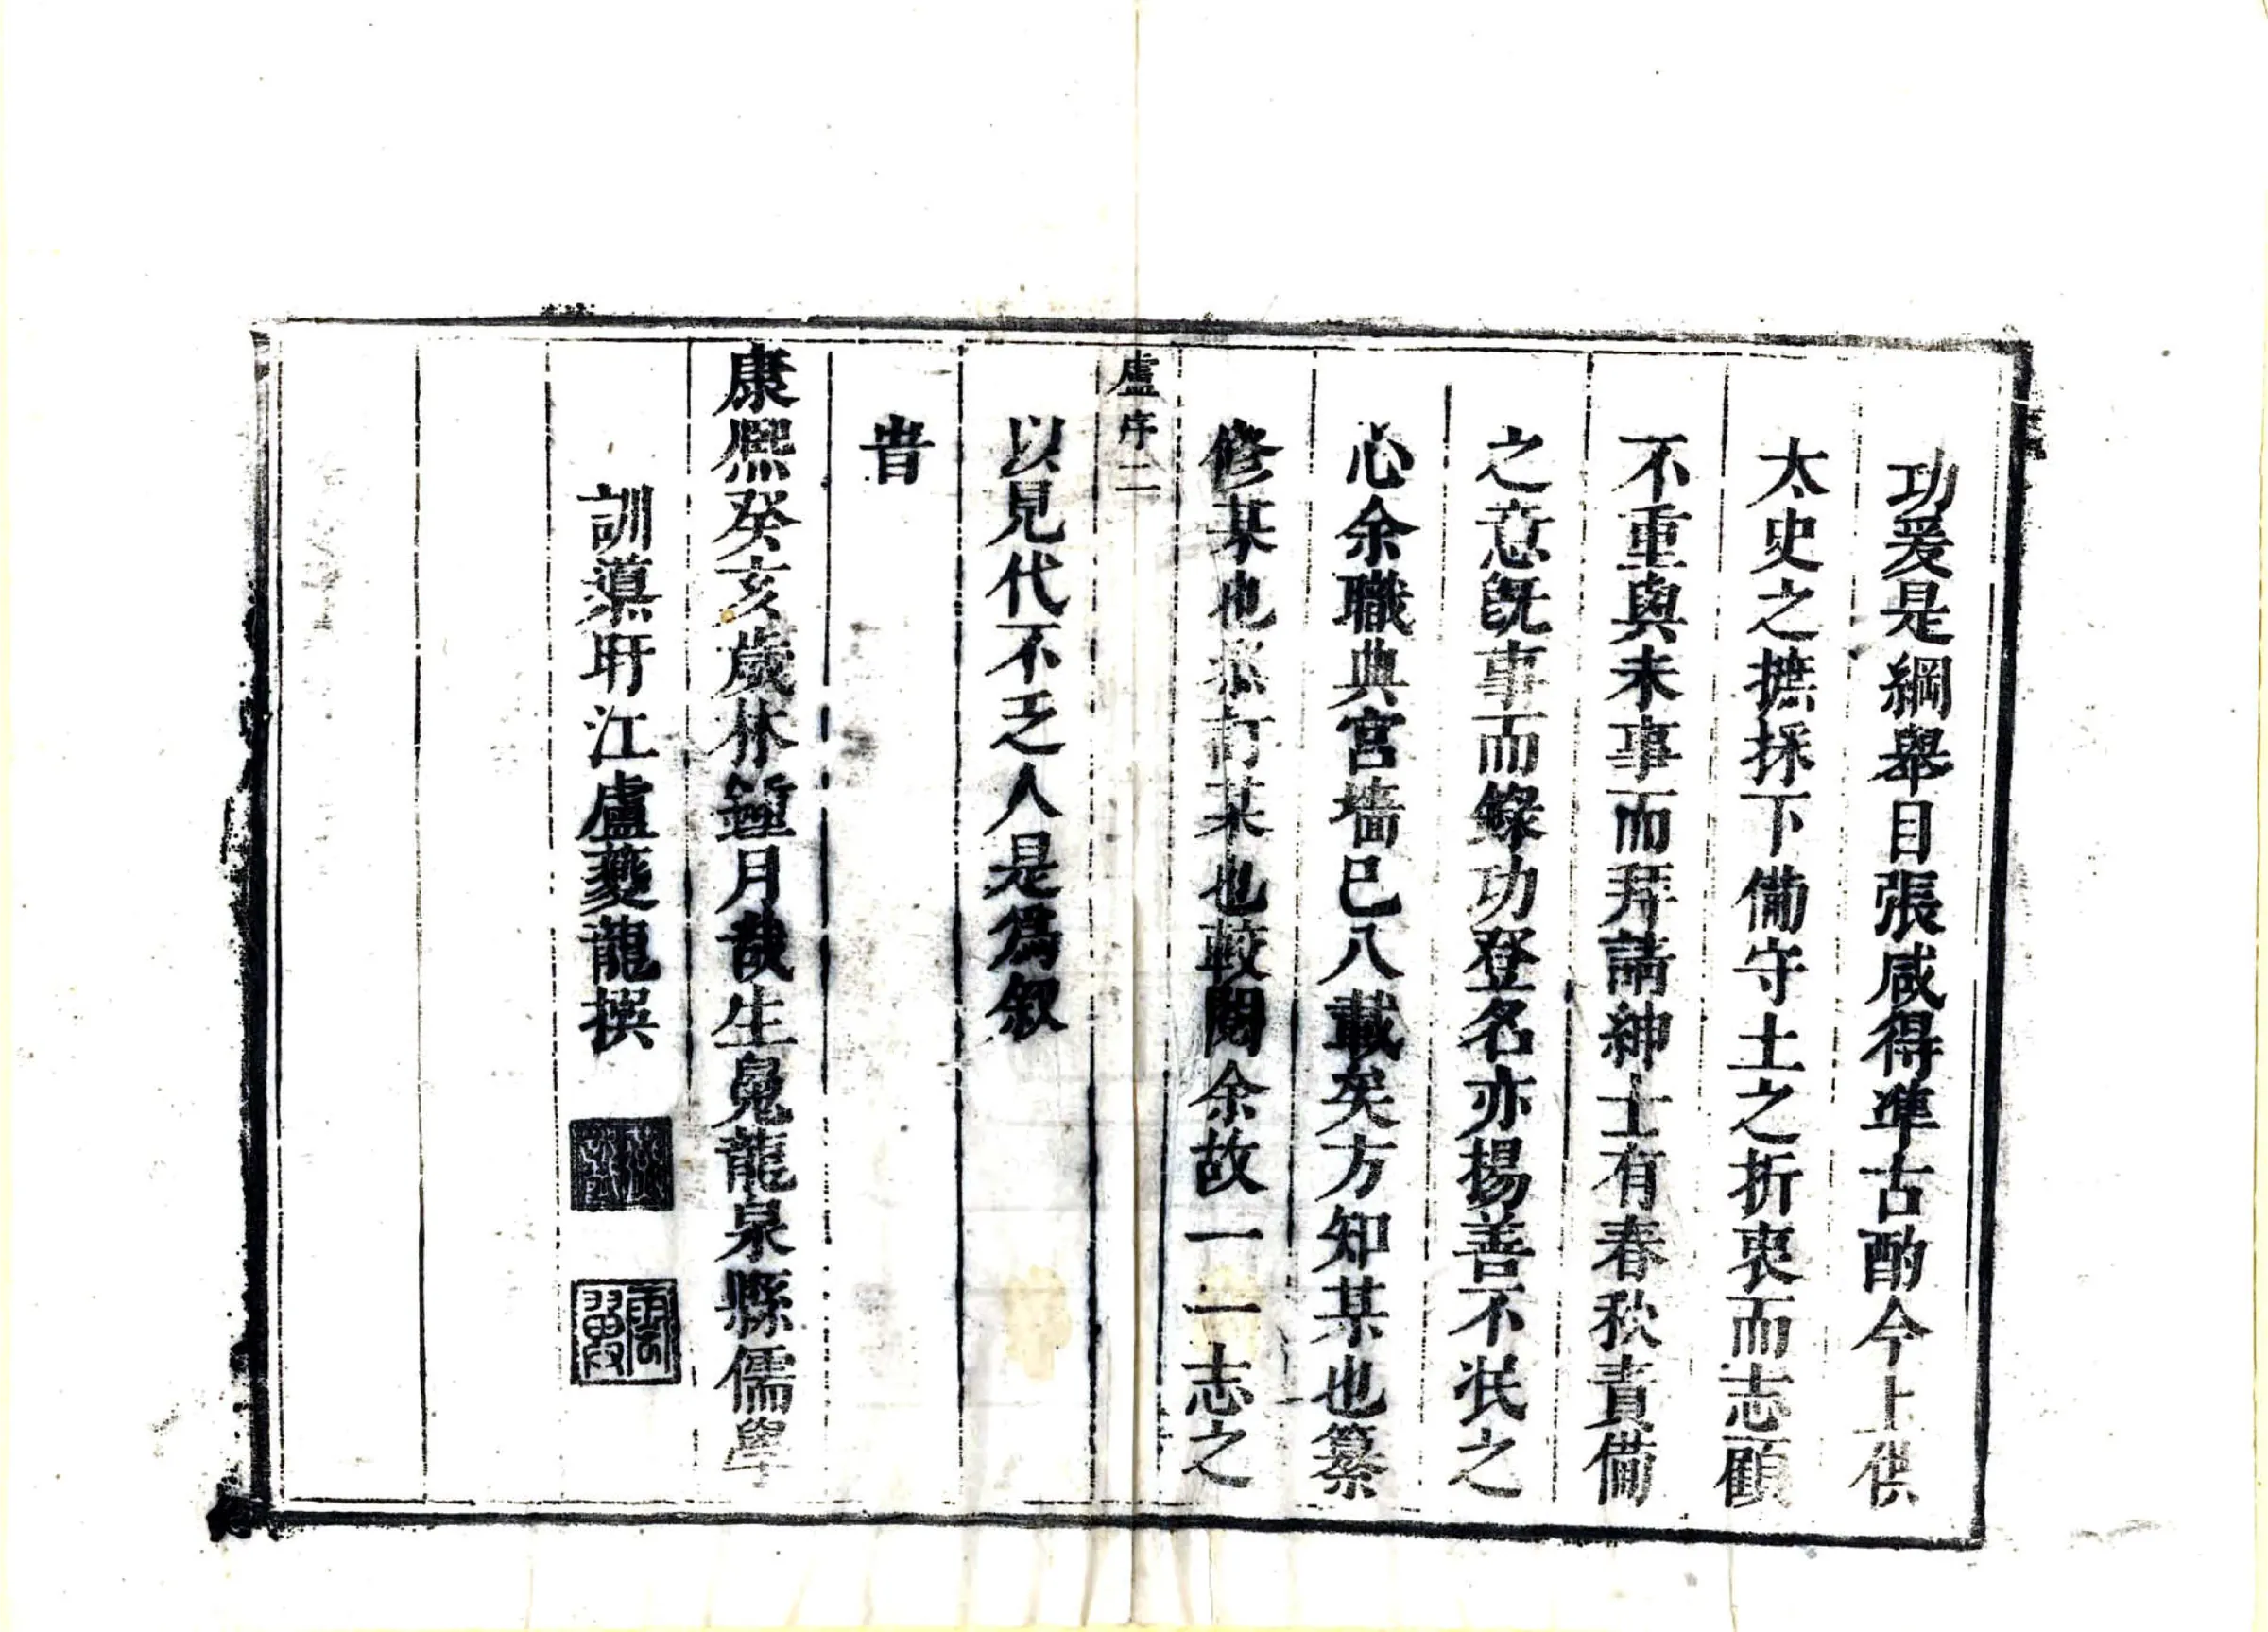 功爰是綱舉目張咸得準古酌今上供
太史之摭採下備守土之折衷而志顧
不重與未事而拜請紳士有春秋責備
之意既事而錄功登名亦揚善不泯之
心余職典宮墻已八載矣方知某也纂
修某也叅訂某也較閱余故一一志之
盧序二
以見代不乏人是爲叙
旹
康熙癸亥歲林鍾月哉生䰟龍泉縣儒學
訓導盱江盧夔龍撰